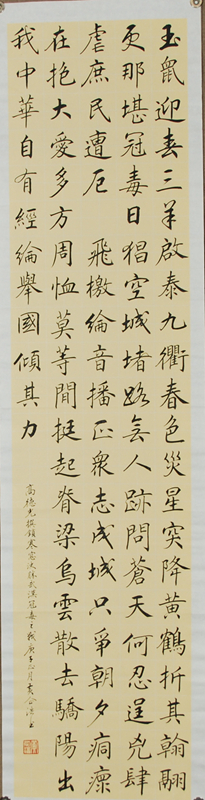 玉鼠迎春三羊啟泰九衢春色災星突降黄鶴折其翰翮
更那堪冠毒日猖空城堵路無人跡問蒼天何忍逞兇肆
虐庶民遭厄 飛檄綸音播正衆志成城只爭朝夕痌瘝
在抱大愛多方周恤莫等閒挺起脊梁烏雲散去驕陽出
我中華自有經綸舉國傾其力
高德光撰鎮寒窓決勝武漢冠毒之戰庚子正月